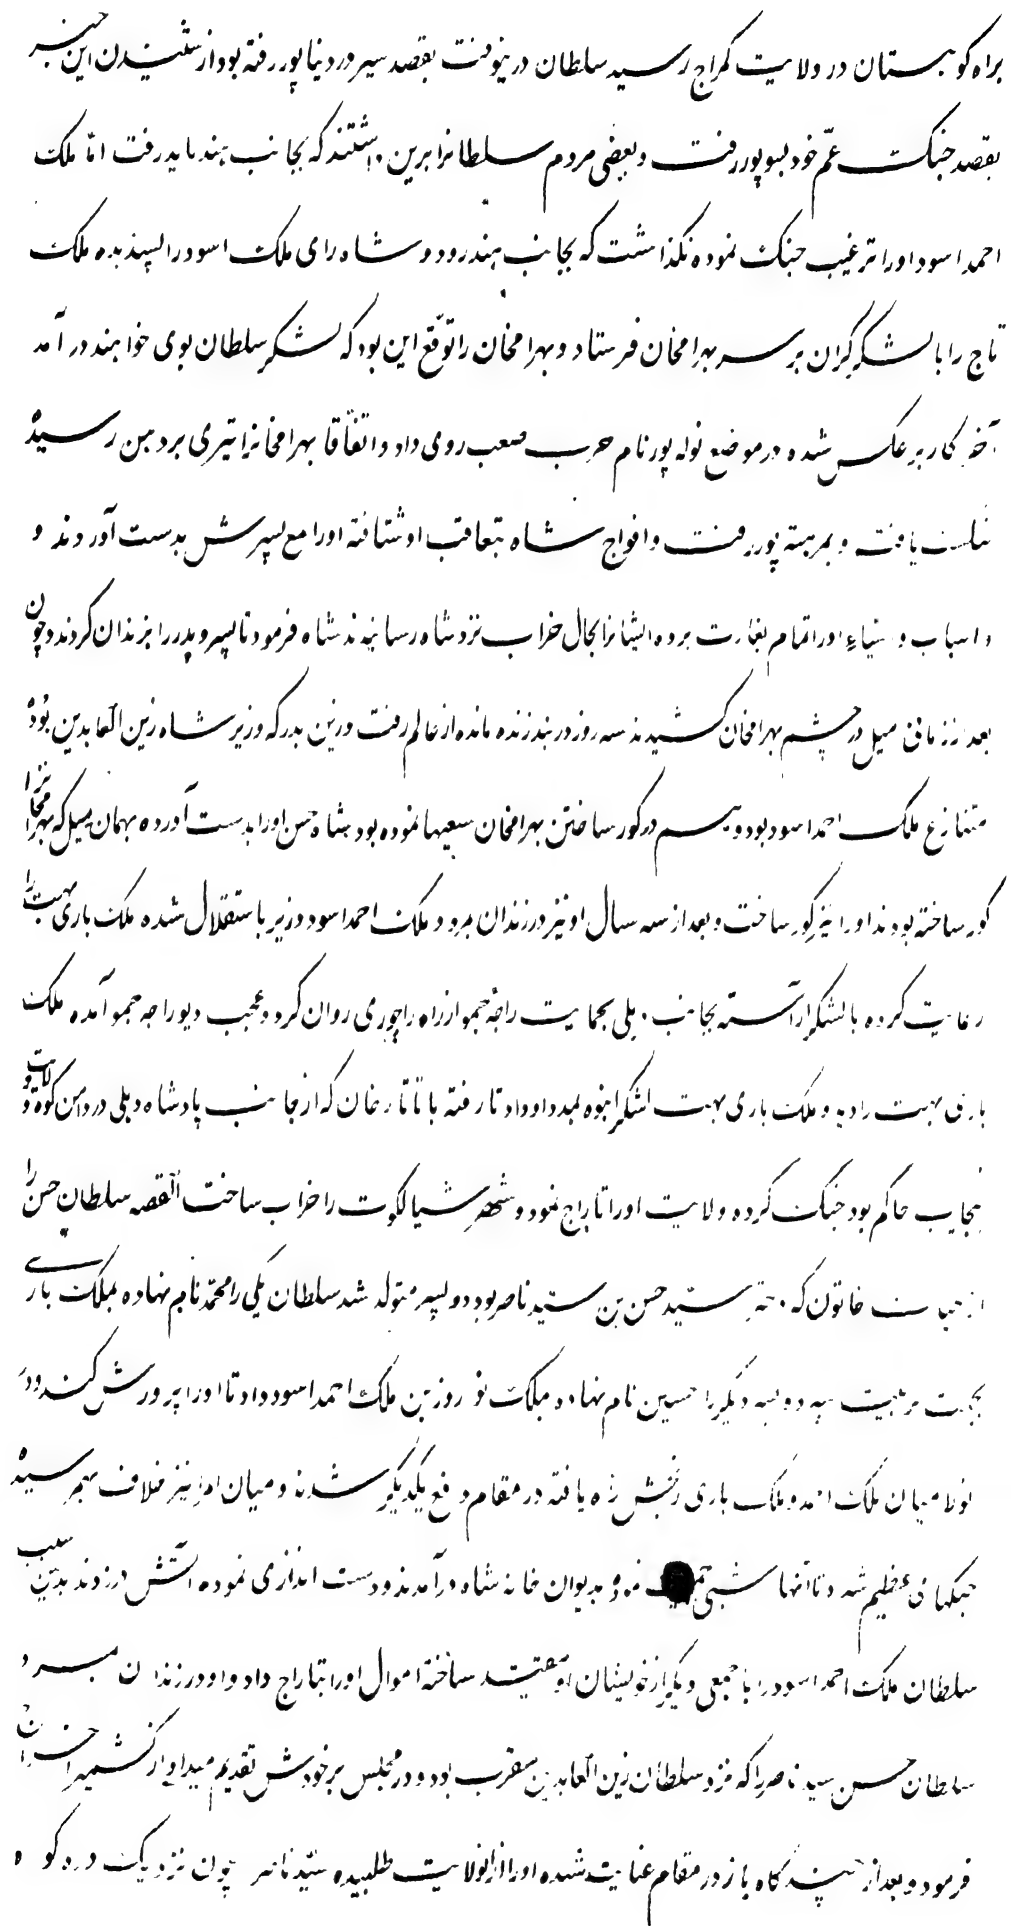 براه کوهستان در ولایت کمراج رسید سلطان درینوقت بقصد سیر در دنیاپور رفته بود از شنیدن این خبر
بقصد جنک عمّ خود بسوپور رفت و بعضی مردم سلطانرا برین داشتند که بجانب هند باید رفت امّا ملک
احمد اسود او را ترغیب جنک نموده نکذاشت که بجانب هند رود و شاه رای ملک اسود را پسندیده ملک
تاج را با لشکر کران بر سر بهرامخان فرستاد و بهرامخان را توقّع این بود که لشکر سلطان بوی خواهند در آمد
آخر کار بر عکس شده در موضع نوله پور نام حرب صعب روی داد و اتفّاقا بهرامخانرا تیری بر دهن رسیده
شکست یافت و بمرهیته پور رفت و افواج شاه بتعاقب او شتافته او را مع پسرش بدست آوردند و
و اسباب و اشیاءِ او را تمام بغارت برده ایشانرا بحال خراب نزد شاه رسانیدند شاه فرمود تا پسر و پدر را بزندان کردند و چون
بعد از زمانی میل در چشم بهرامخان کشیدند سه روز در بند زنده مانده از عالم رفت و زین بدر که وزیر شاه زین العابدین بوده
متنازع ملک احمد اسود بود و هم در کور ساختن بهرامخان سعیها نموده بود شاه حسن او را بدست آورده بهمان میل که بهرامخانرا
کور ساخته بودند او را نیز کور ساخت و بعد از سه سال او نیز در زندان مرد و ملک احمد اسود وزیر باستقلال شده ملک باری بهت را
رعایت کرده با لشکر آراسته بجانب دهلی بحمایت راجهٔ جمو از راه راجوری روان کرد و عجب دیو راجه جمو آمده ملک
باری بهت را دید و ملک باری بهت لشکر انبوه بمدد او داد تا رفته با تاتارخان که از جانب پادشاه دهلی در دامن کوه و ولایت
پنجاب حاکم بود جنک کرده ولایت او را تاراج نمود و شهر شیالکوت را خراب ساخت القصه سلطان حسن را
از حیات خاتون که دختر سیّد حسن بن سیّد ناصر بود دو پسر متولّد شد سلطان یکی را محمّد نام نهاده بملک باری
بجهت تربیت سپرد و پسر دیکر را حسین نام نهاده بملک نوروز بن ملک احمد اسود داد تا او را پرورش کند و در
انولا میان ملک احمد و ملک باری رنجش راه یافته در مقام دفع یکدیکر شدند و میان امرا نیز خلاف بهم رسیده
جنکهای عظیم شد تا آنها شبی نموده بدیوان خانه شاه در آمدند و دست اندازی نموده آتش در زدند بدین سبب
سلطان ملک احمد اسود را با جمعی دیکر از خویشان او مقیّد ساخته اموال او را بتاراج داد و او در زندان بمرد
سلطان حسن سید ناصر را که نزد سلطان زین العابدین مقرب بود و در مجلس بر خودش تقدیم میداد از کشمیر اخراج
فرمود و بعد از چند کاه باز در مقام عنایت شده او را از انولایت طلبیده سیّد ناصر چون نزدیک دره کوه